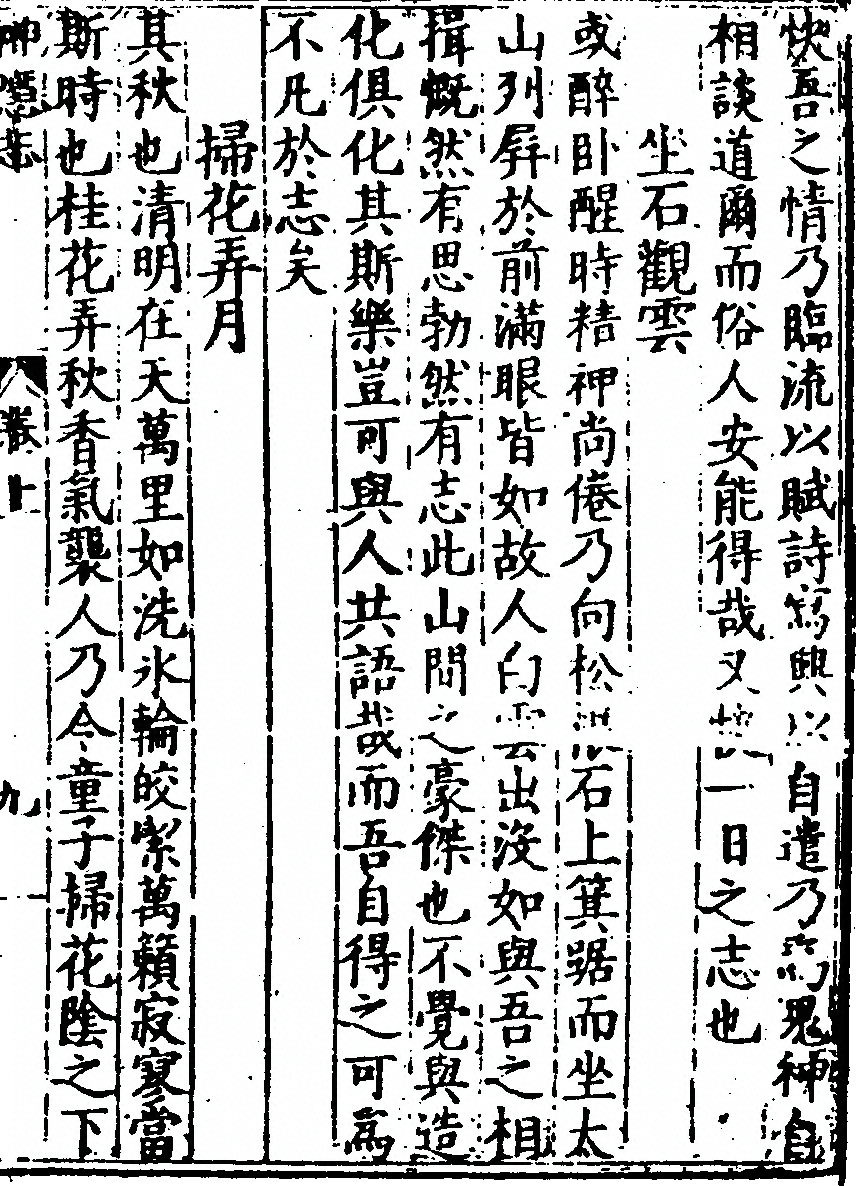 快吾之情乃臨流以賦詩寫興以自遣乃寫鬼神自
相談道爾而俗人安能得哉又快一日之志也
坐石觀雲
或醉卧醒時精神尚倦乃向松石上箕踞而坐太
山列屏於前滿眼皆如故人白雲出沒如與吾之相
揖慨然有思勃然有志此山間之豪傑也不覺與造
化俱化其斯樂豈可與人共語哉而吾自得之可為
不凡於志矣
掃花弄月
其秋也清明在天萬里如洗氷輪皎潔萬籟寂寥當
斯時也桂花弄秋香氣襲人乃令童子掃花陰之下
神隱志
卷上
九